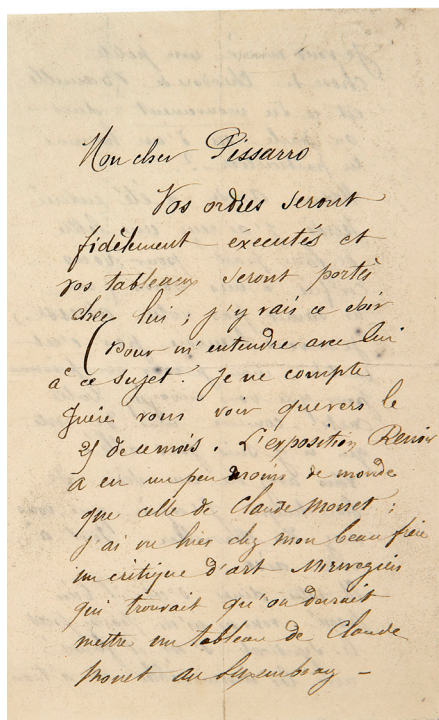 Mon cher Pissarro
Vos ordres seront
fidèlement executés et
vos tableaux seront portés
chez lui ; j'y vais ce soir
pour m'entendre avec lui
à ce sujet. Je ne compte
guère vous voir que vers le
25 de ce mois. L'exposition Renoir
a eu un peu moins de monde
que celle de Claude Monet ;
j'ai vu hier chez mon beau frère
un critique d'art Norvegien
qui trouvait qu'on devrait
mettre un tableau de Claude
Monet au Luxembourg –